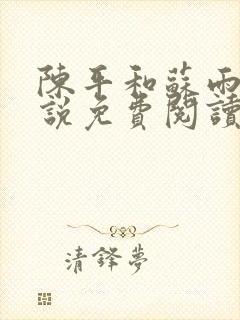 陳平和蘇雨
說免費閱讀
清鋒夢